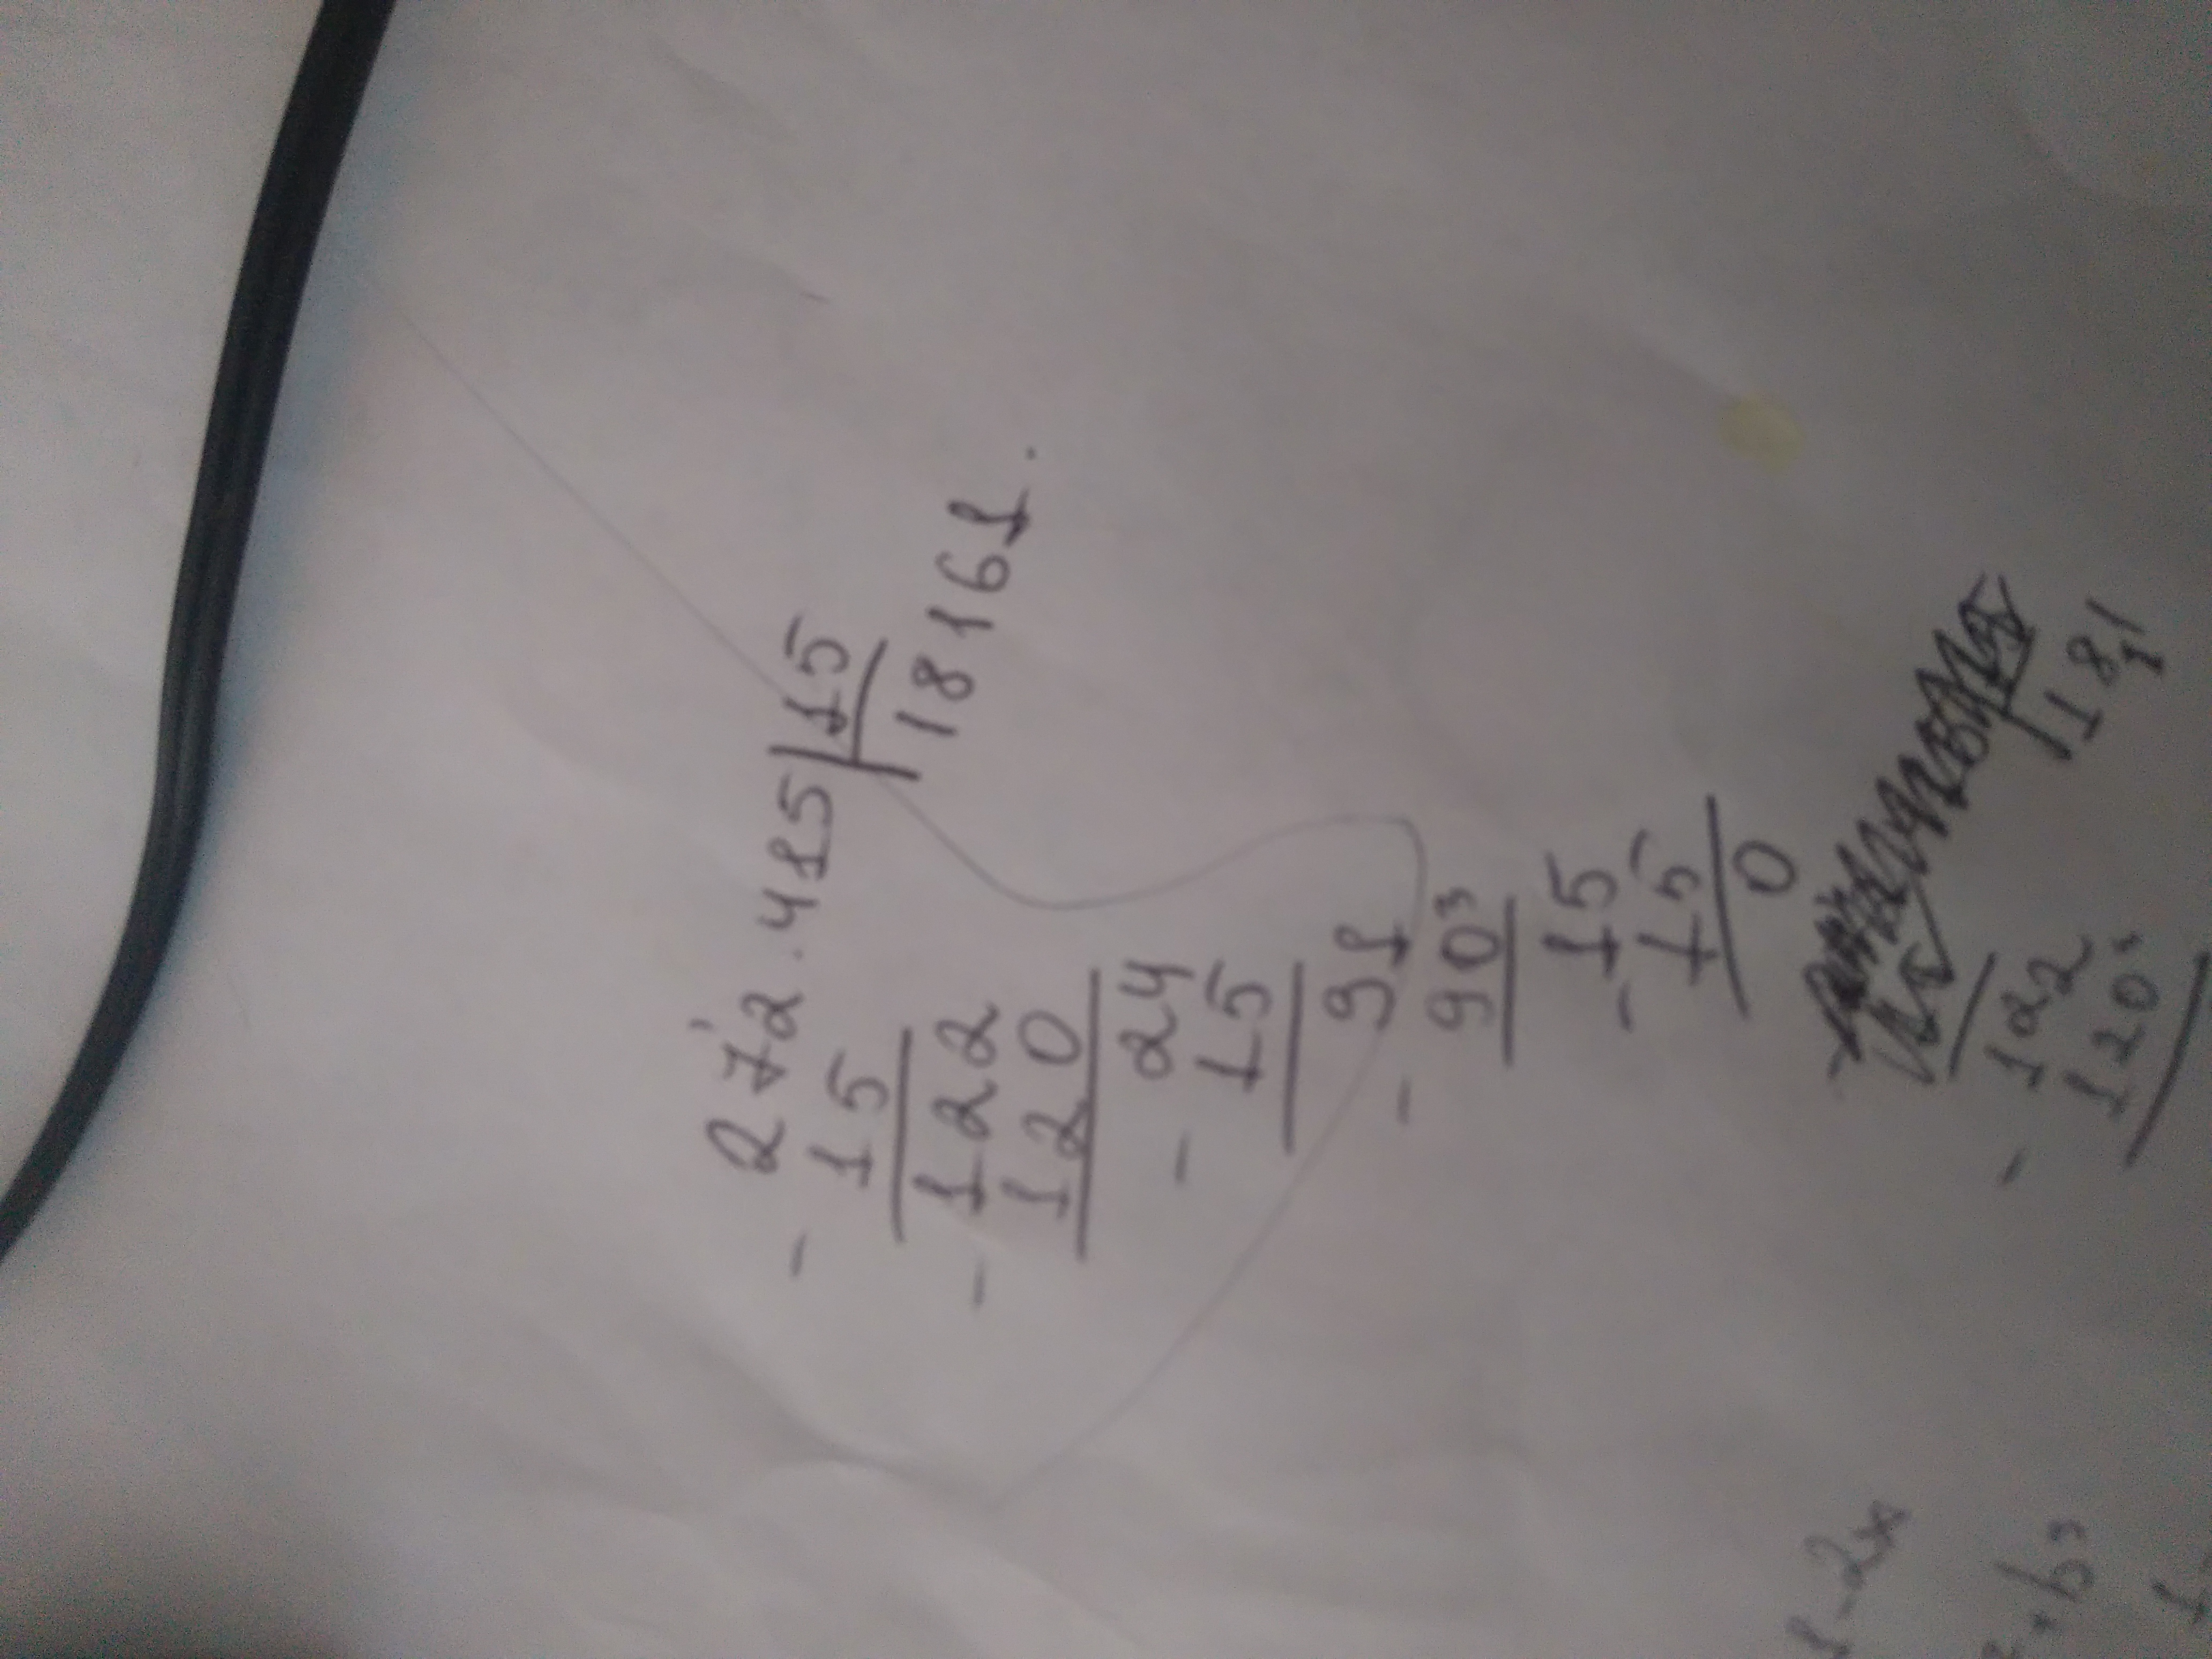 272.415 15
- 15 18161.
- 122
120
- 24
15
91
- 90
15
- 15
0
181
- 122
120
8-2x